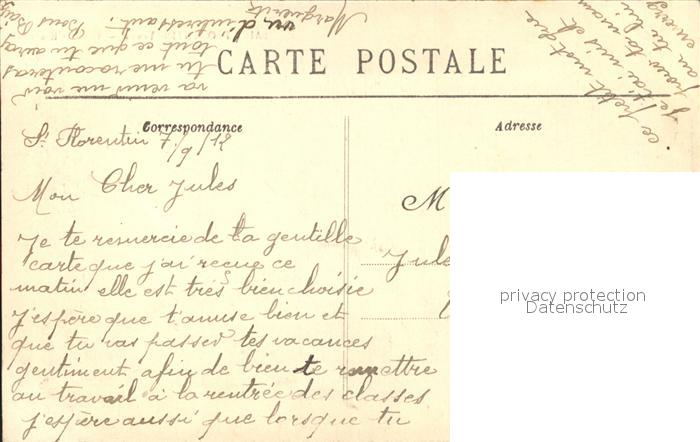 CARTE POSTALE
Correspondance
Adresse
St Florentin 7/9/12
Mon Cher Jules
Je te remercie de ta gentille
carte que j'ai reçue ce
matin elle est très bien choisie
J'espère que t'amuse bien et
que tu vas passer tes vacances
gentiment afin de bien te remettre
au travail à la rentrée des classes
j'espère aussi que lorsque tu
va venir me voir
tu me raconteras
tout ce que tu auras
vu d'intéressant. Bons
Marguerite
ce petit mot que
je t'ai mis et
pour ta maman
M
Jule
privacy protection
Datenschutz